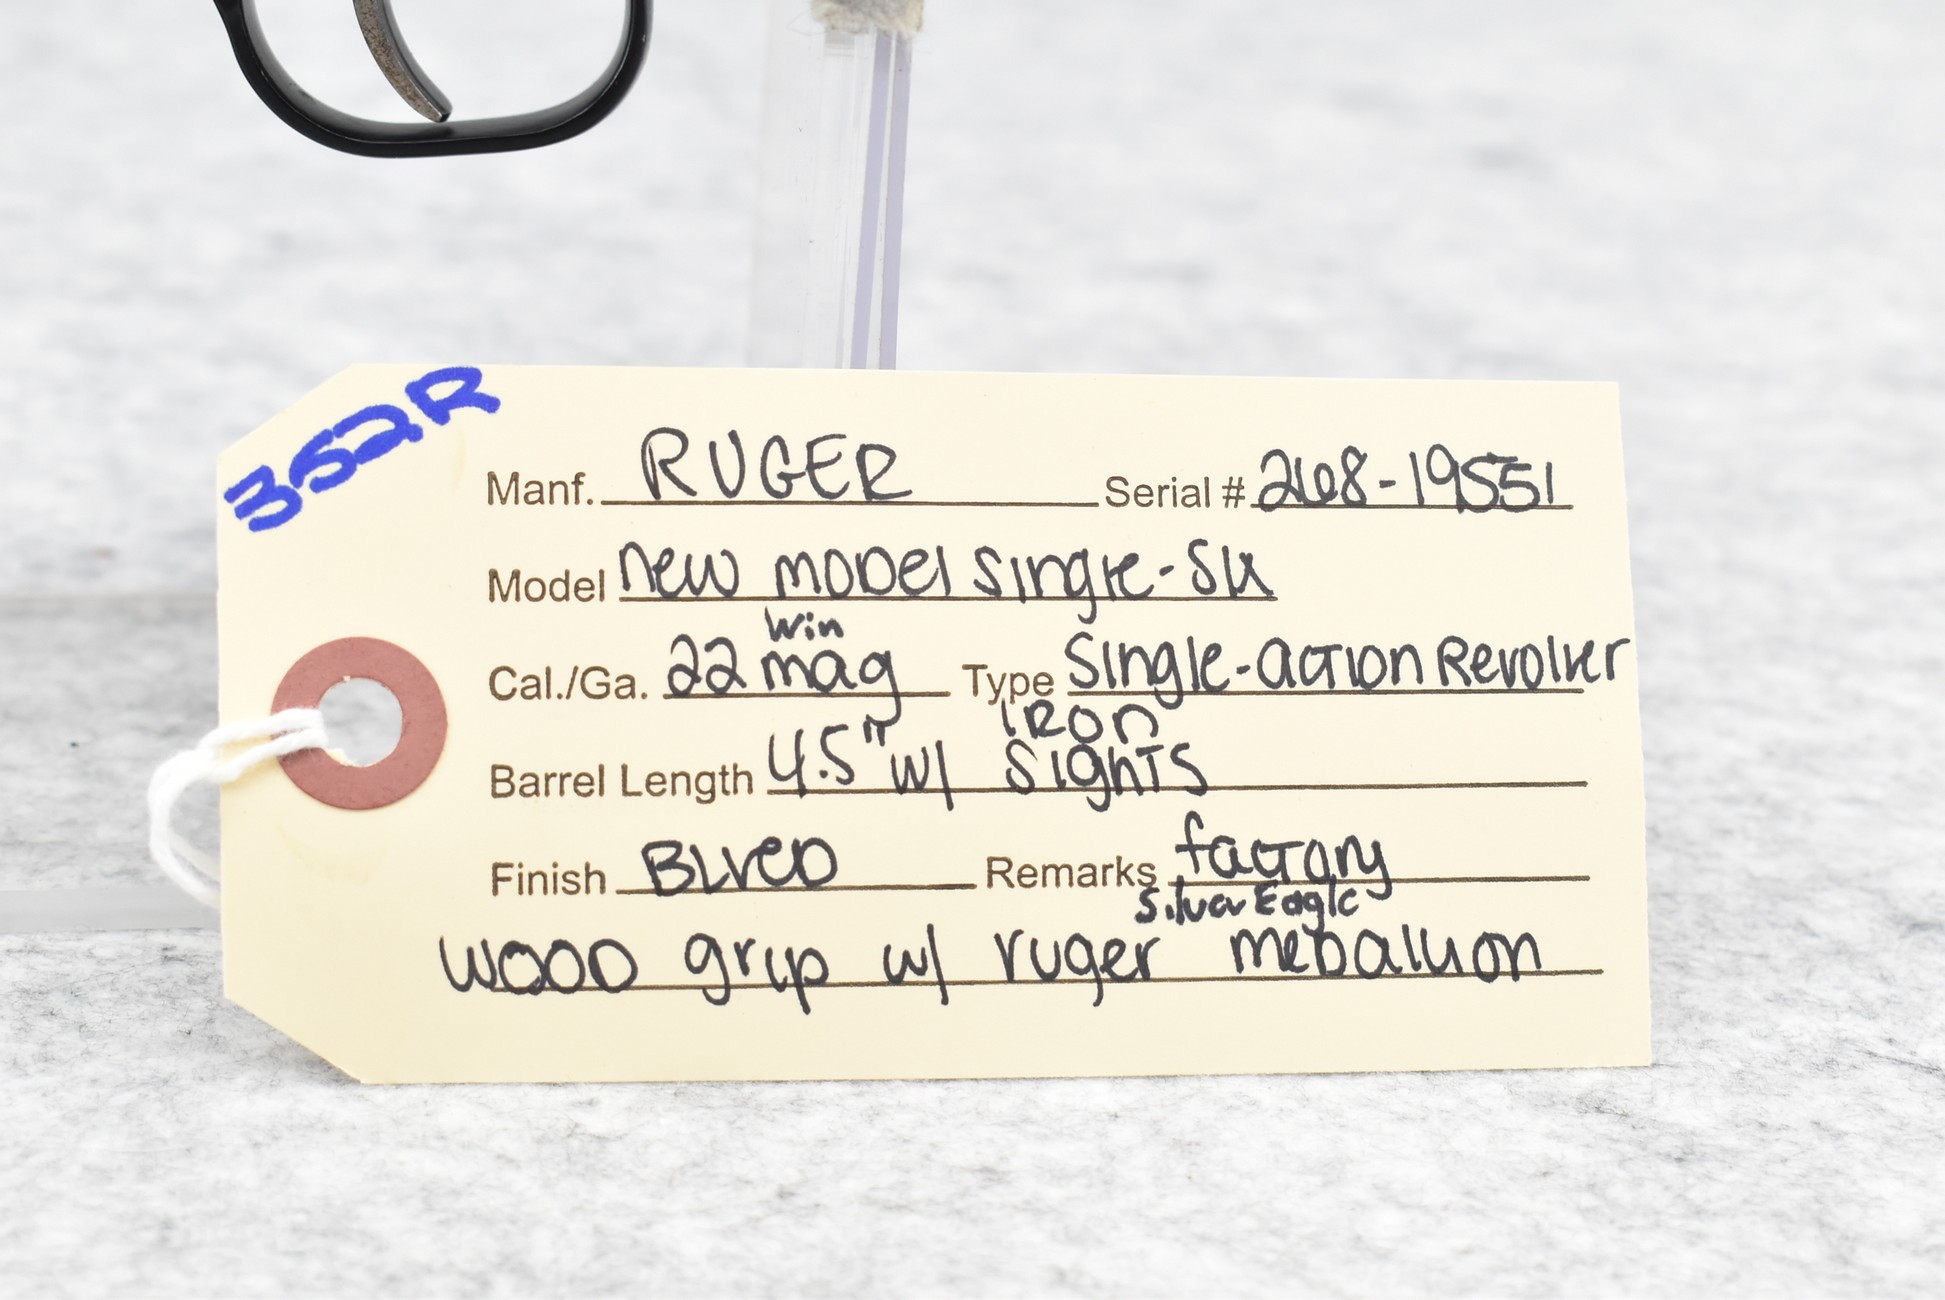 352R
Manf. RUGER Serial # 268-19551
Model new model single-six
win
Cal./Ga. 22 mag Type Single-action Revolver
Iron
Barrel Length 4.5" w/ Sights
Finish Blued Remarks factory
Silver Eagle
wood grip w/ ruger medallion